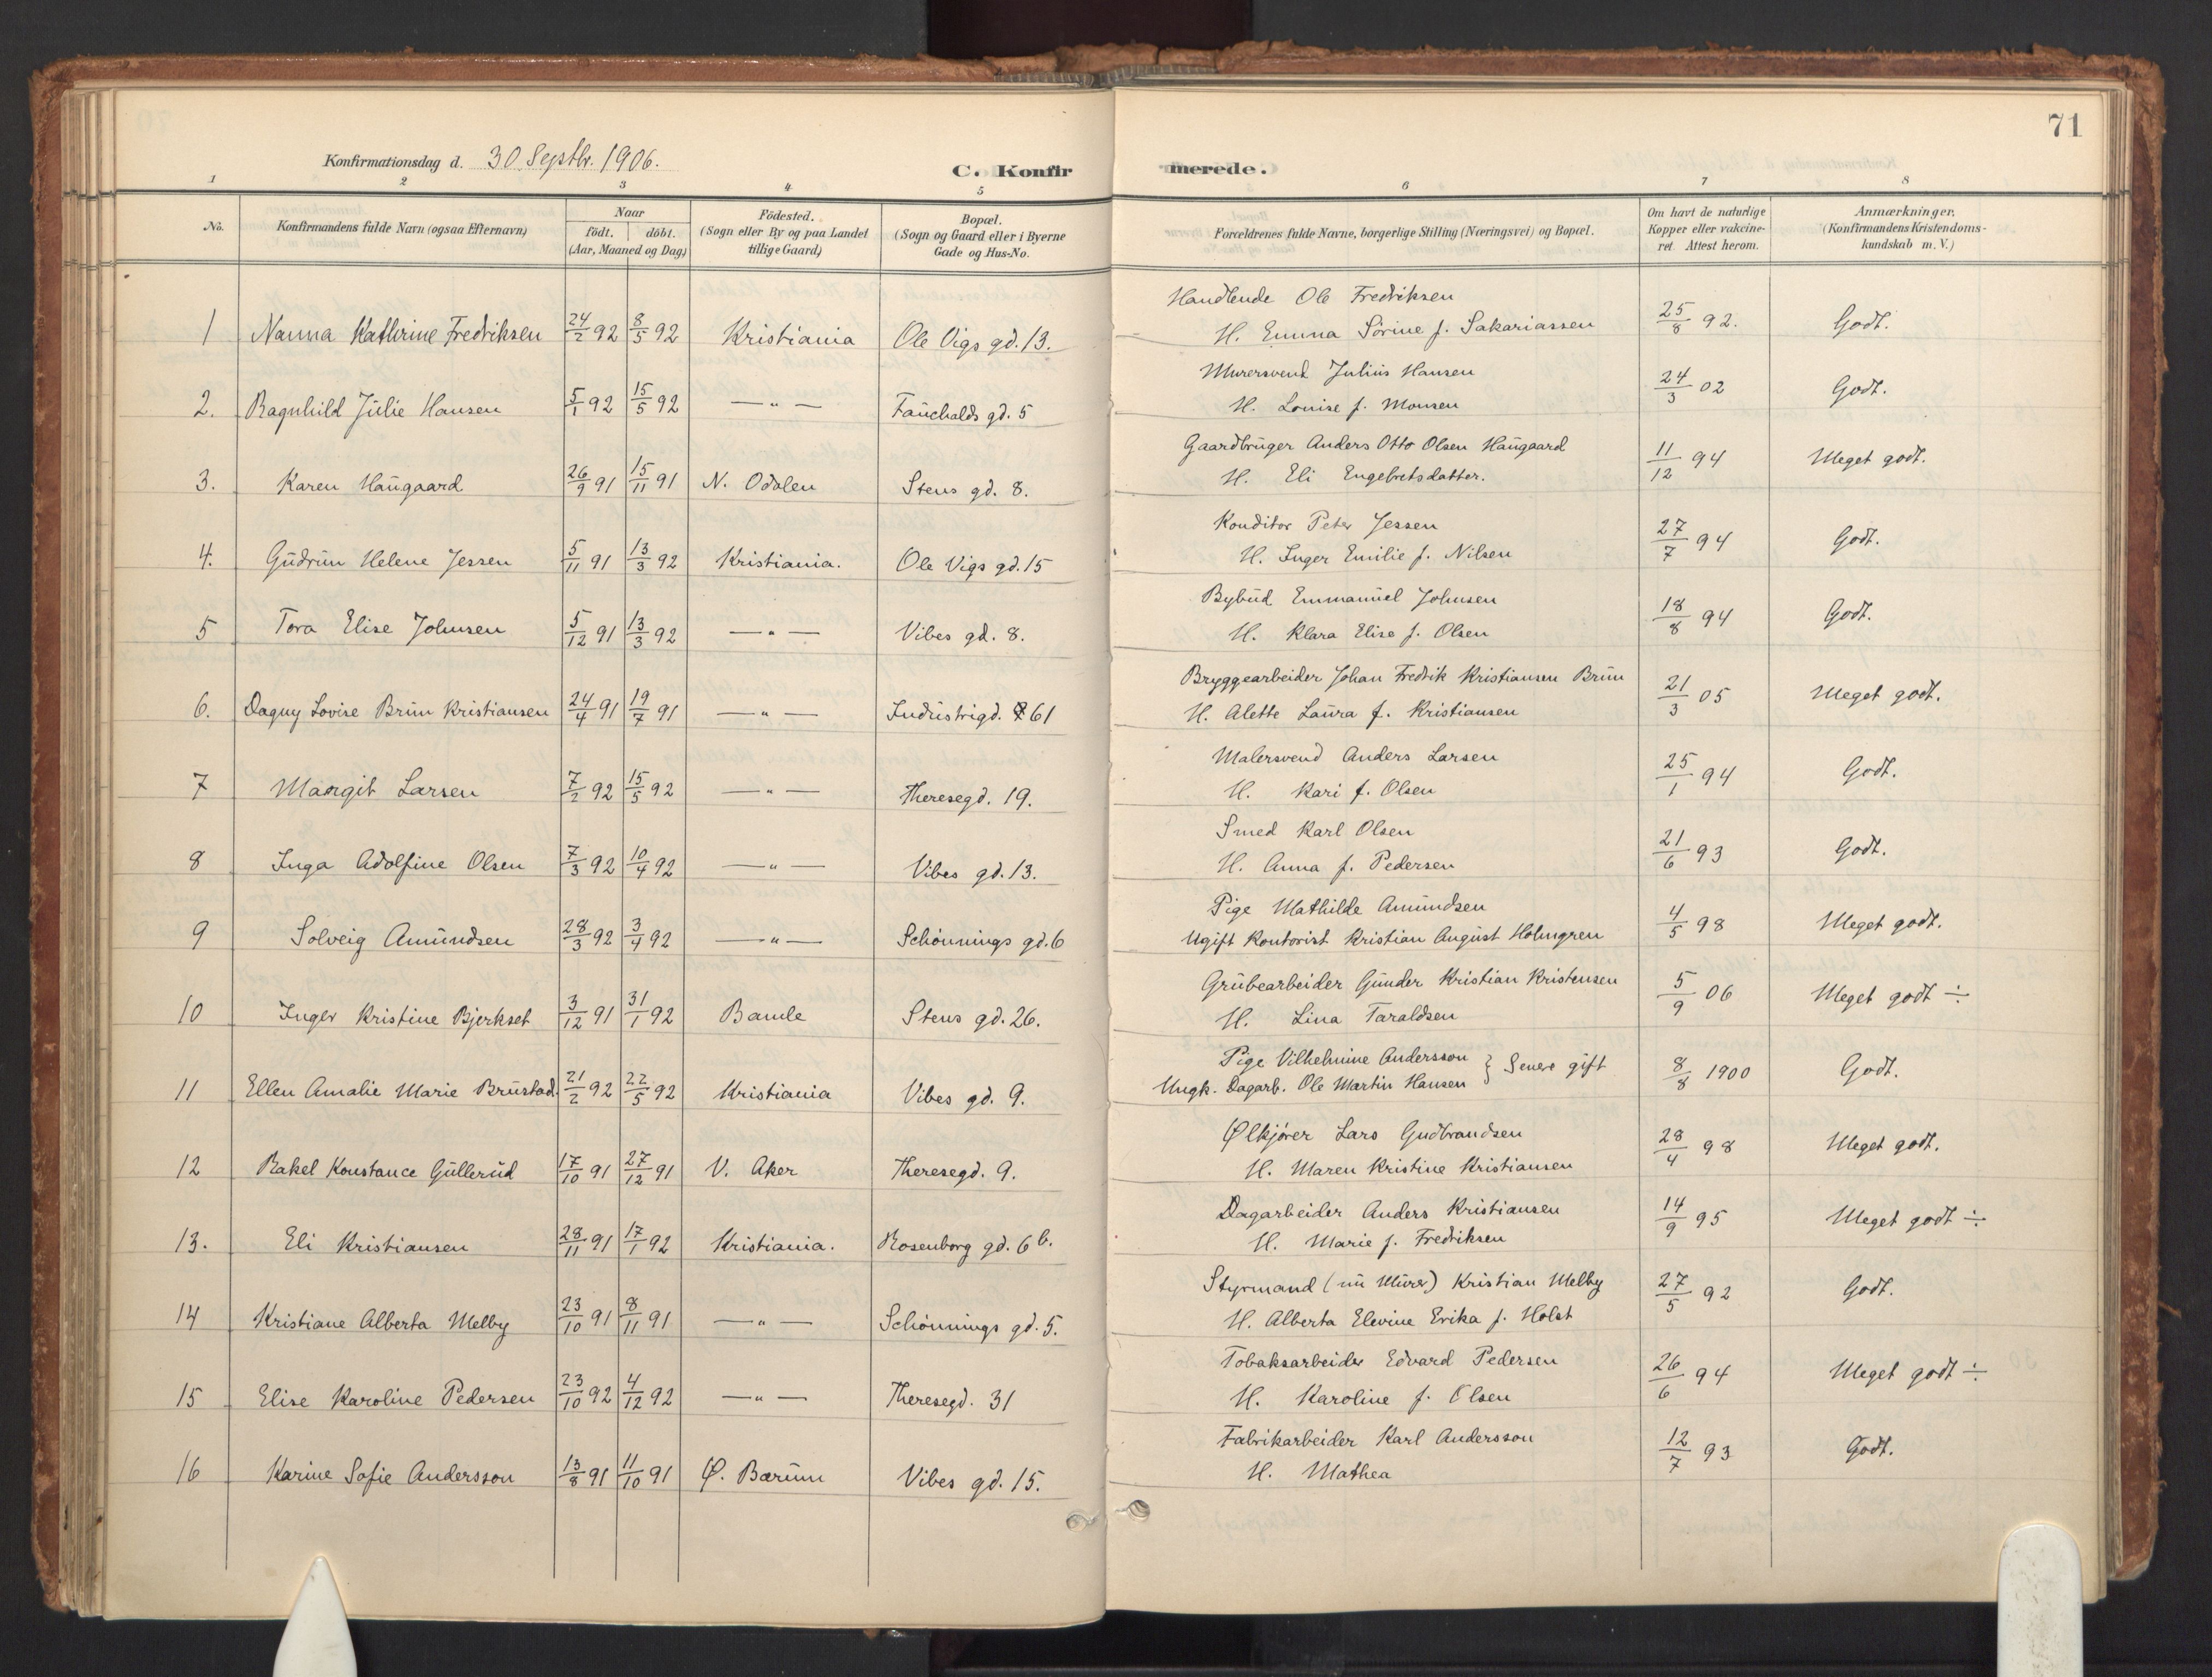 71
Konfirmationsdag d. 30 Septbr. 1906.
C. Konfirmerede.
1 2 3 4 5 6 7 8
No. Konfirmandens fulde Navn (ogsaa Efternavn) Naar født. døbt. (Aar, Maaned og Dag) Födested. (Sogn eller By og paa Landet tillige Gaard) Bopæl. (Sogn og Gaard eller i Byerne Gade og Hus-No. Forældrenes fulde Navne, borgerlige Stilling (Næringsvei) og Bopæl. Om havt de naturlige Kopper eller vakcineret. Attest herom. Anmærkninger. (Konfirmandens Kristendomskundskab m. V.)
Handlende Ole Fredriksen
1 Nanna Kathrine Fredriksen 24/2 92 8/5 92 Kristiania Ole Vigs gd. 13. H. Emma Sörine f. Sakariassen 25/8 92. Godt.
Murersvend Julius Hansen
2. Ragnhild Julie Hansen 5/1 92 15/5 92 — " — Fauchalds gd. 5 H. Louise f. Monsen 24/3 02 Godt.
Gaardbruger Anders Otto Olsen Haugaard
3. Karen Haugaard 26/9 91 15/11 91 N. Odalen Stens gd. 8. H. Eli Engebretsdatter. 11/12 94 Meget godt.
Konditor Peter Jessen
4. Gudrun Helene Jessen 5/11 91 13/3 92 Kristiania. Ole Vigs gd. 15 H. Inger Emilie f. Nilsen 27/7 94 Godt.
Bybud Emmanuel Johnsen
5 Tora Elise Johnsen 5/12 91 13/3 92 — " — Vibes gd. 8. H. Klara Elise f. Olsen 18/8 94 Godt.
Bryggearbeider Johan Fredrik Kristiansen Brun
6. Dagny Lovise Brun Kristiansen 24/4 91 19/7 91 — " — Industrigd. 61 H. Alette Laura f. Kristiansen 21/3 05 Meget godt.
Malersvend Anders Larsen
7 Margit Larsen 7/2 92 15/5 92 — " — Theresegd. 19. H. Kari f. Olsen 25/1 94 Godt.
Smed Karl Olsen
8 Inga Adolfine Olsen 7/3 92 10/4 92 — " — Vibes gd. 13. H. Anna f. Pedersen 21/6 93 Godt.
Pige Mathilde Amundsen
9 Solveig Amundsen 28/3 92 3/4 92 — " — Schönnings gd. 6 Ugift Kontorist Kristian August Holmgren 4/5 98 Meget godt.
Grubearbeider Gunder Kristian Kristensen
10 Inger Kristine Bjerkset 3/12 91 31/1 92 Bamle Stens gd. 26. H. Lina Taraldsen 5/9 06 Meget godt ÷
Pige Vilhelmine Andersson } Senere gift
11 Ellen Amalie Marie Brustad. 21/2 92 22/5 92 Kristiania Vibes gd. 9. Ungk. Dagarb. Ole Martin Hansen 8/8 1900 Godt.
Ølkjörer Lars Gudbrandsen
12 Rakel Konstance Gullerud 17/10 91 27/12 91 V. Aker Theresegd. 9. H. Maren Kristine Kristiansen 28/4 98 Meget godt.
Dagarbeider Anders Kristiansen
13. Eli Kristiansen 28/11 91 17/1 92 Kristiania. Rosenborg gd. 6 b. H. Marie f. Fredriksen 14/9 95 Meget godt ÷
Styrmand (nu Murer) Kristian Melby
14 Kristiane Alberta Melby 23/10 91 8/11 91 — " — Schönnings gd. 5. H. Alberta Elevine Erika f. Holst 27/5 92 Godt.
Tobaksarbeider Edvard Pedersen
15 Elise Karoline Pedersen 23/10 92 4/12 92 — " — Theresegd. 31 H. Karoline f. Olsen 26/6 94 Meget godt ÷
Fabrikarbeider Karl Andersson
16 Karine Sofie Andersson 13/8 91 11/10 91 Ø. Bærum Vibes gd. 15. H. Mathea 12/7 93 Godt.